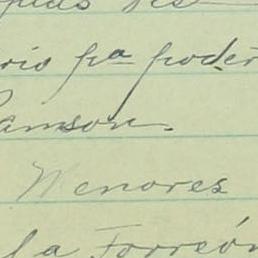 rio pa poder
Samson.
Menores
la Torreón